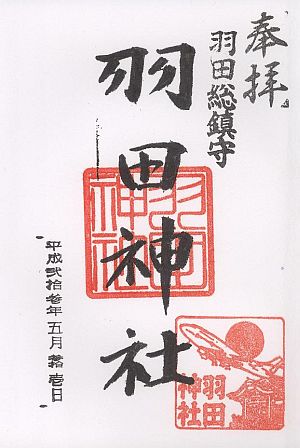 奉拝
羽田総鎮守
羽田神社
羽田神社
平成弐拾参年五月拾壱日
羽田
神社